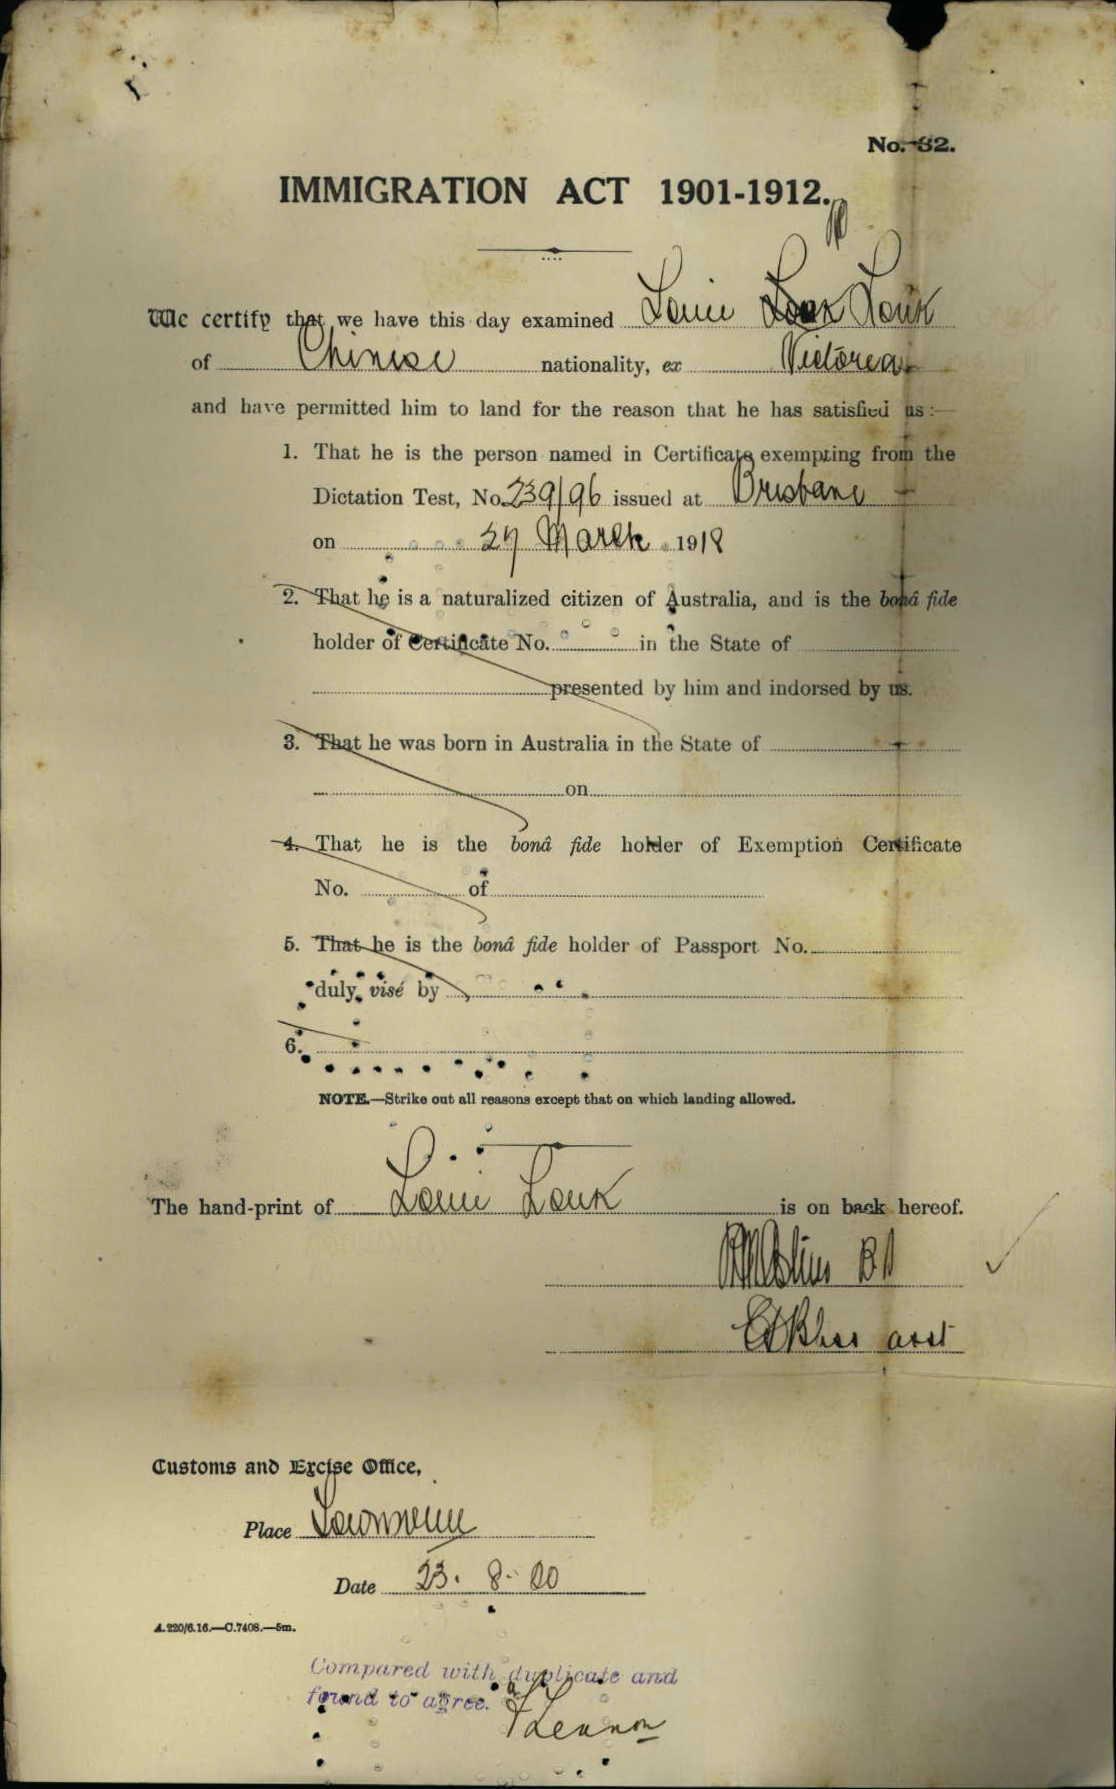 No. 32.
IMMIGRATION ACT 1901-1912.
We certify that we have this day examined Louie Louk
of Chinese nationality, ex Victoria
and have permitted him to land for the reason that he has satisfied us:—
1. That he is the person named in Certificate exempting from the
Dictation Test, No. 239/96 issued at Brisbane
on 27 March 1918
2. That he is a naturalized citizen of Australia, and is the bonâ fide
holder of Certificate No. in the State of
presented by him and indorsed by us.
3. That he was born in Australia in the State of
on
4. That he is the bonâ fide holder of Exemption Certificate
No. of
5. That he is the bonâ fide holder of Passport No.
duly visé by
6.
NOTE.—Strike out all reasons except that on which landing allowed.
The hand-print of Louie Louk is on back hereof.
asst
Customs and Excise Office,
Place Townsville
Date 23. 8. 20
A.220/6.16.—C.7408.—5m.
Compared with duplicate and
found to agree.
Lennon